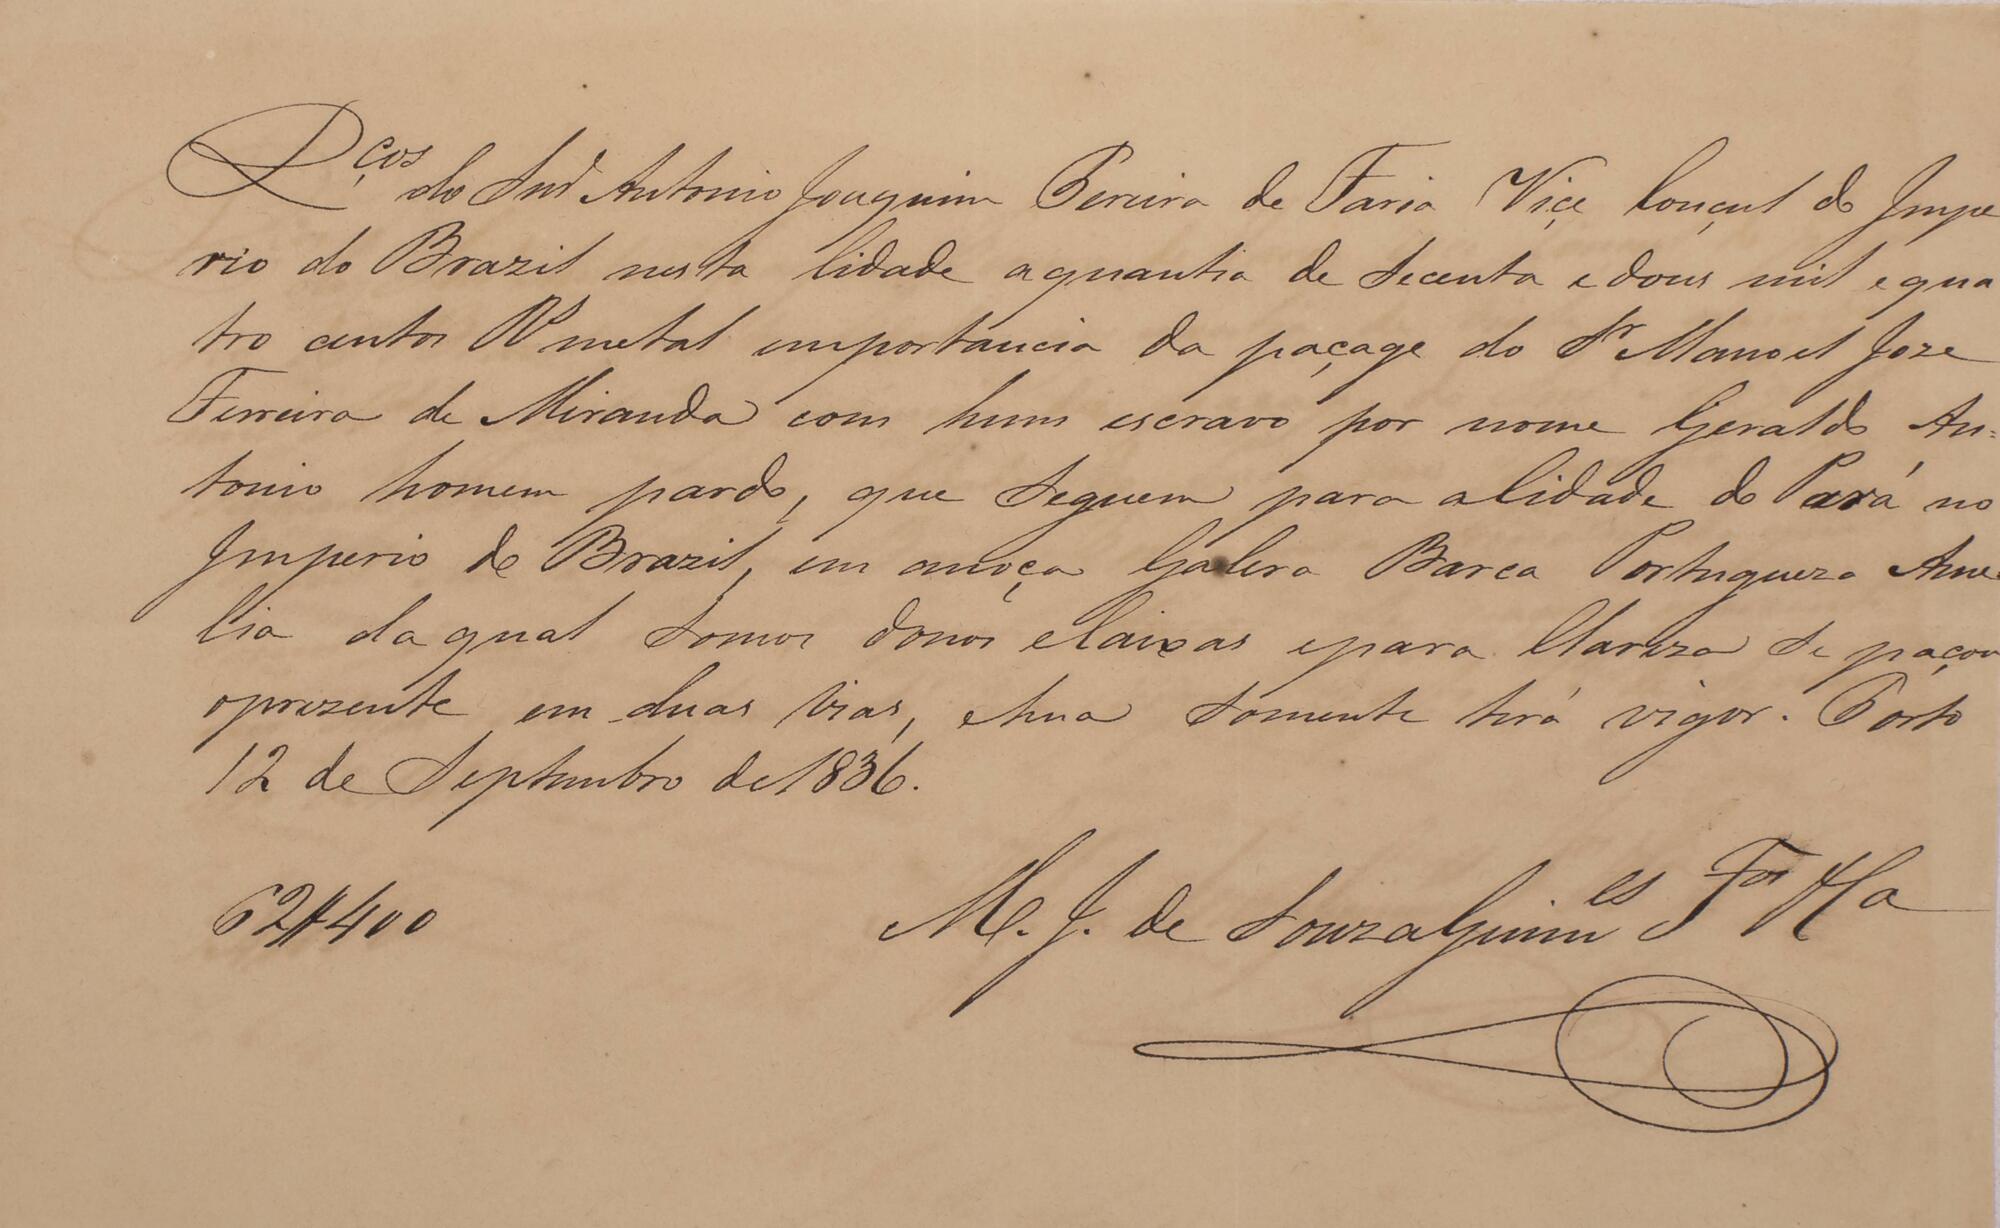 Rços do Snr Antonio Joaquim Pereira de Faria Viçe Conçul do Impe
rio do Brazil nesta Cidade aquantia de Secenta e dous mil e qua
tro centos Rs metal emportancia da paçage do Sr Manoel Joze
Ferreira de Miranda com hum escravo por nome Geraldo An=
tonio homem pardo, que Seguem para aCidade do Pará no
Imperio do Brazil, em anoça Galera Barca Portugueza Ame
lia da qual Somos donos eCaixas epara Clareza Se paçou
oprezente em duas Vias, ehua Somente terá vigor. Porto
12 de Septembro de 1836.
62$400
M. J. de Souza Guimes Fos & Ca